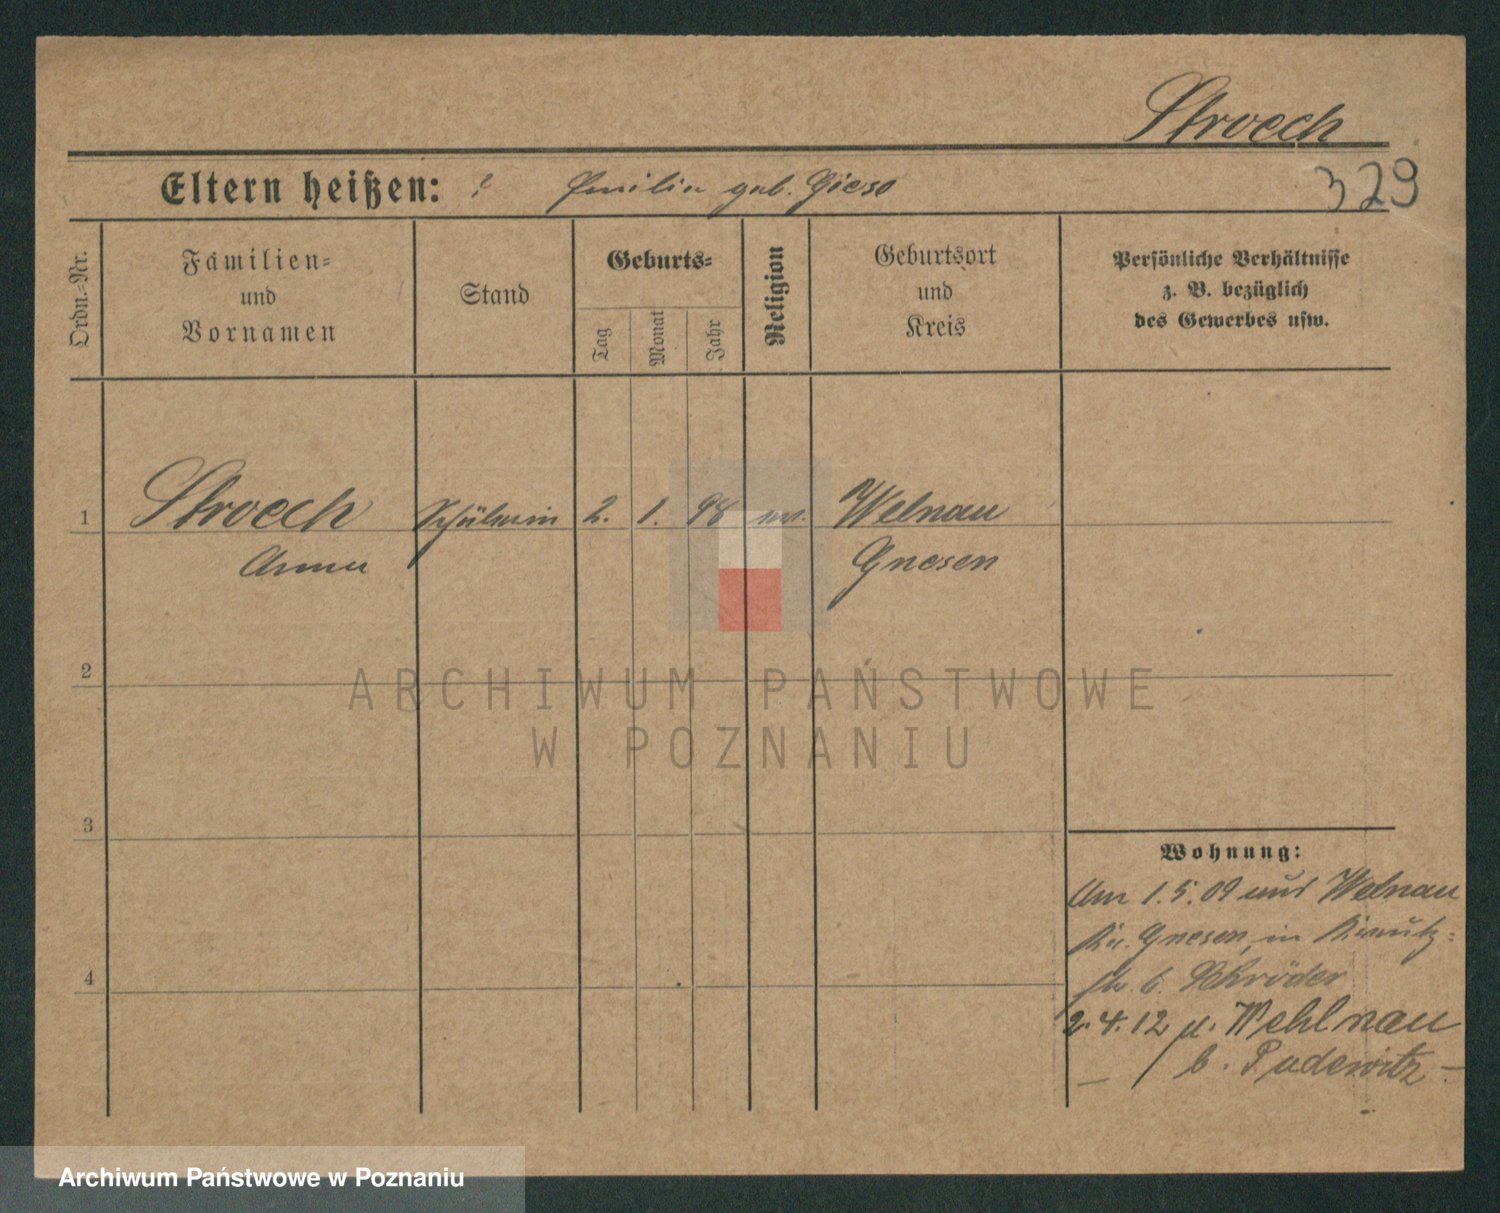 Stroech
Eltern heißen: ? Emilie geb. Giese
329
Ordn.-Nr.
Familien-
und
Vornamen
Stand
Geburts-
Tag
Monat
Jahr
Religion
Geburtsort
und
Kreis
Persönliche Verhältnisse
z. B. bezüglich
des Gewerbes usw.
1 Stroech Schülerin 2. 1. 98 ev. Welnau
Anna Gnesen
2
3
4
Wohnung:
Am 1.5.09 aus Welnau
Kr. Gnesen, in
b. Schröder
2.4.12 n. Wehlnau
b. Pudewitz
ARCHIWUM PAŃSTWOWE
W POZNANIU
Archiwum Państwowe w Poznaniu